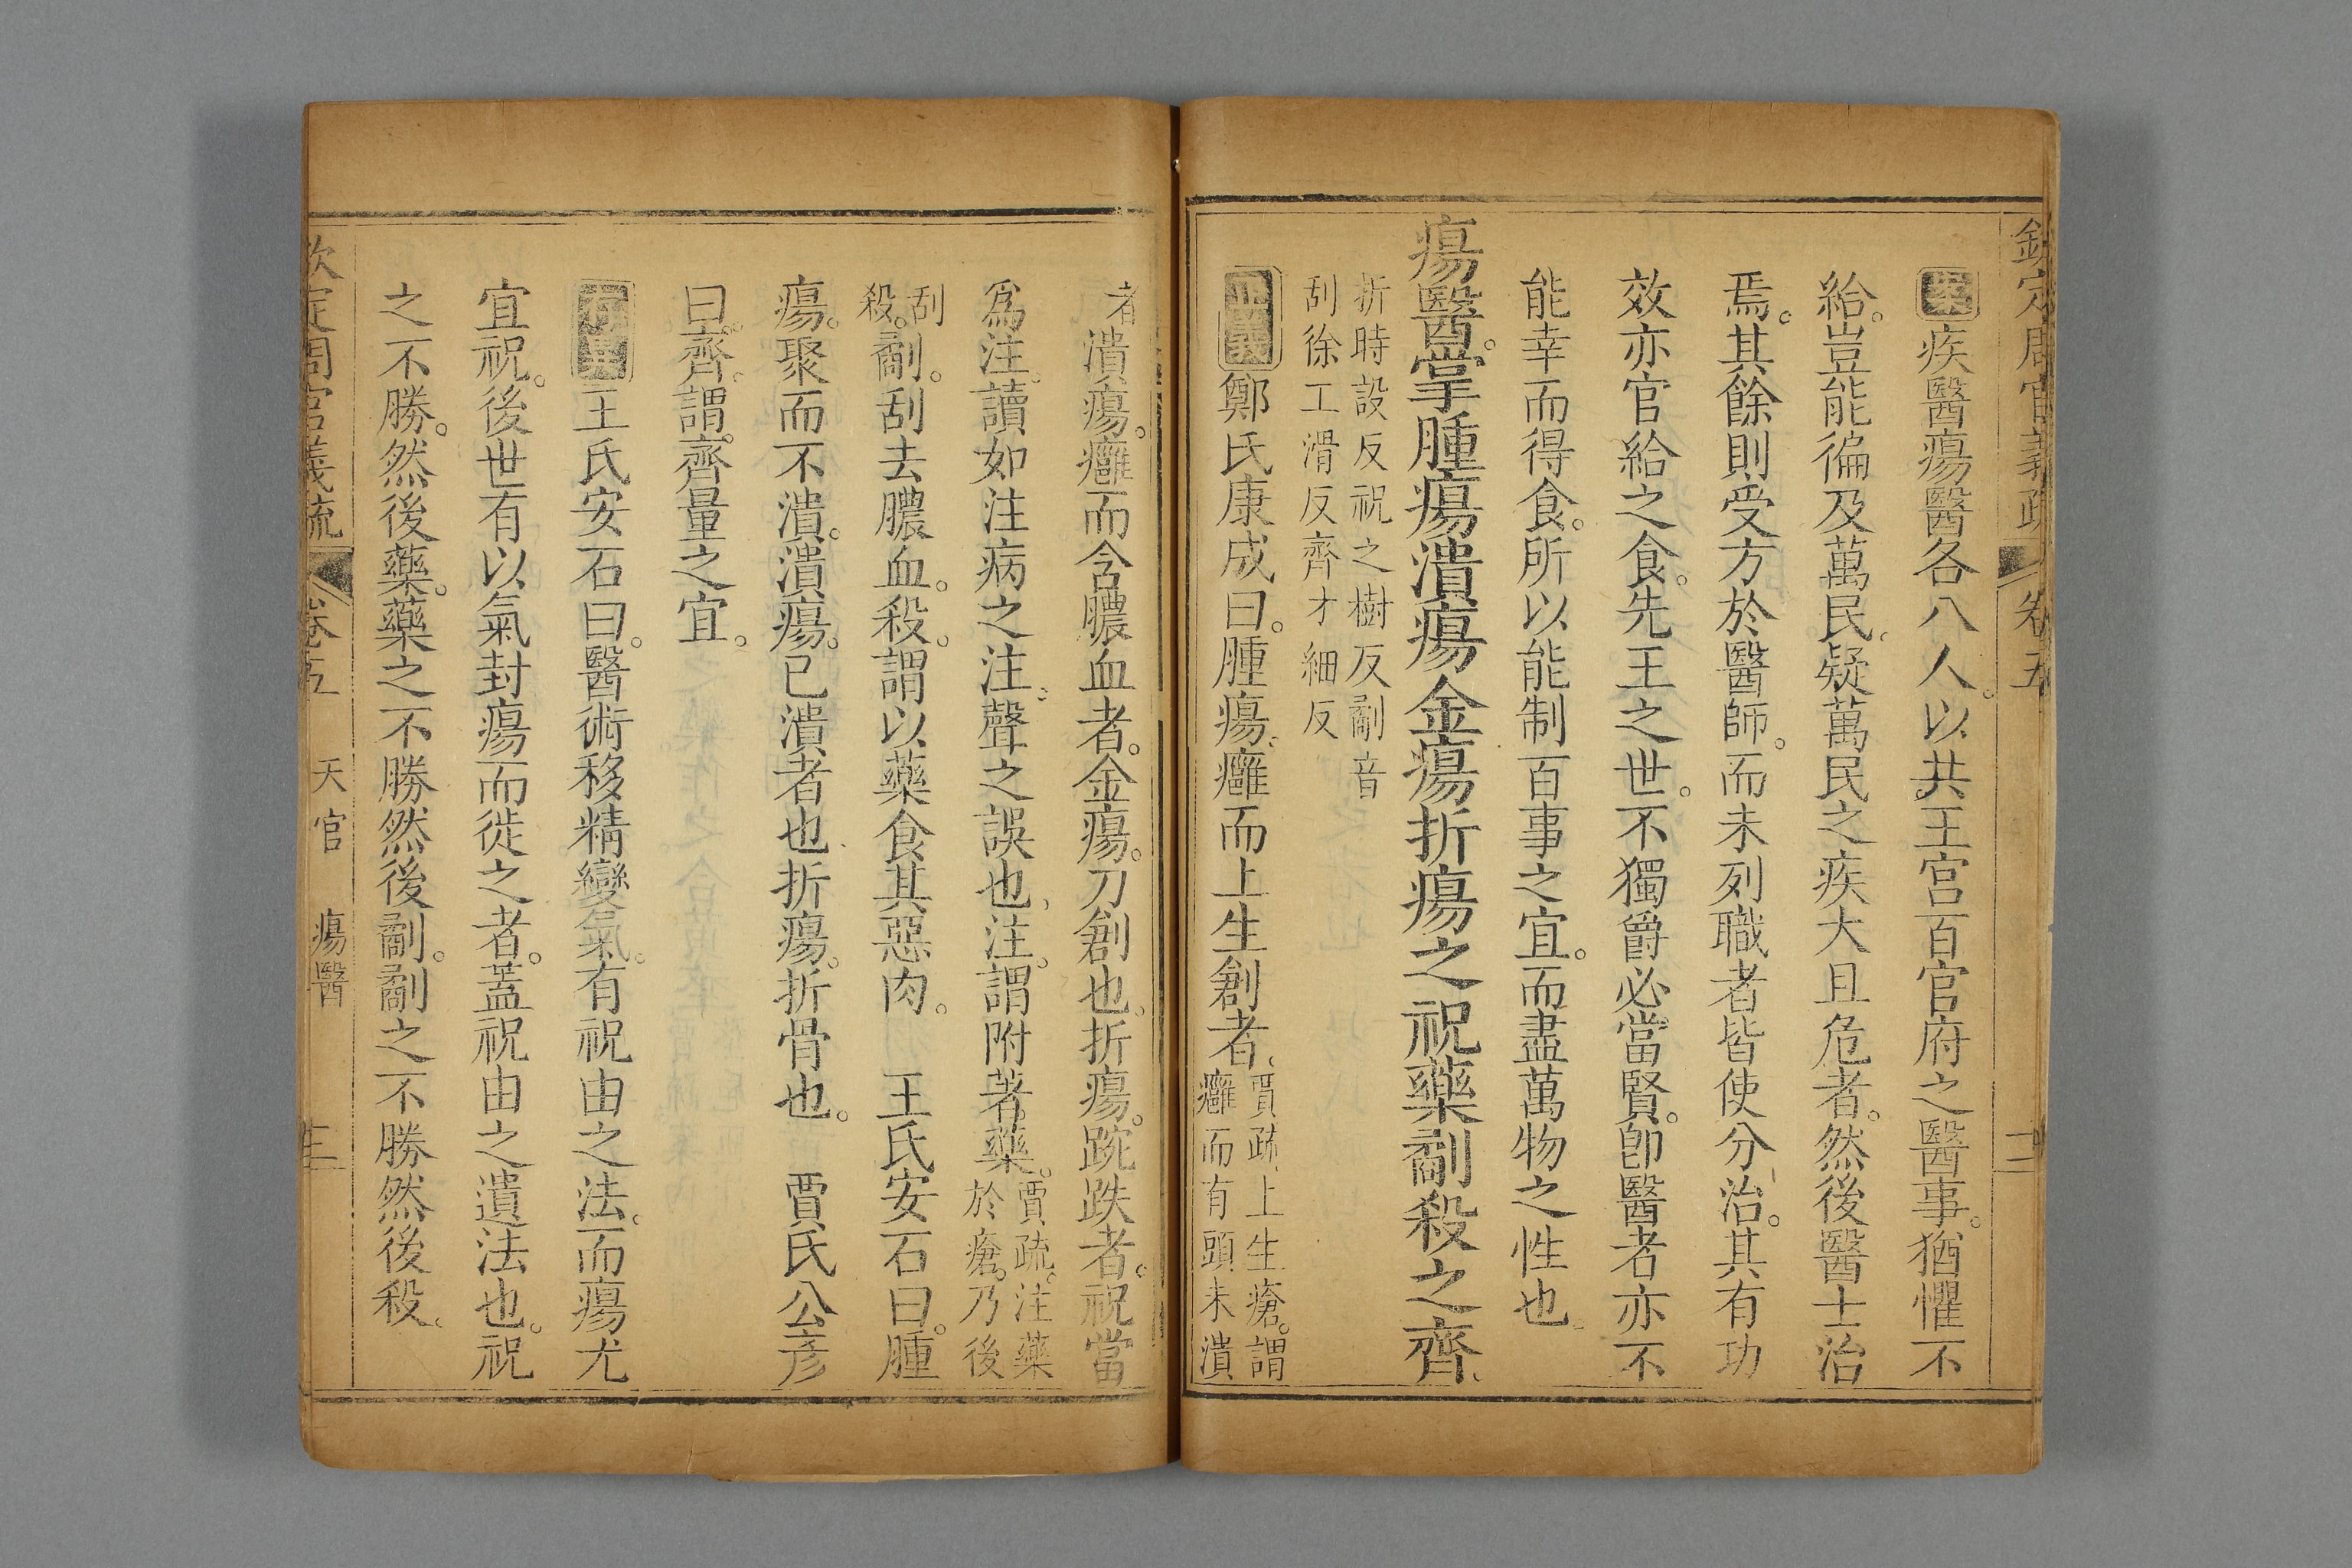 欽定周官義疏 卷五
案疾醫瘍醫各八人。以共王宮百官府之醫事。猶懼不
給。豈能徧及萬民。疑萬民之疾大且危者。然後醫士治
焉。其餘則受方於醫師。而未列職者皆使分治。其有功
效亦官給之食。先王之世。不獨爵必當賢。卽醫者亦不
能幸而得食。所以能制百事之宜。而盡萬物之性也
瘍醫。掌腫瘍潰瘍金瘍折瘍之祝藥劀殺之齊。
折時設反祝之樹反劀音
刮徐工滑反齊才細反
正義鄭氏康成曰。腫瘍。癰而上生創者。
賈疏上生瘡。謂
癰而有頭未潰
者
潰瘍。癰而含膿血者。金瘍。刀創也。折瘍。踠跌者。祝當
爲注。讀如注病之注。聲之誤也。注。謂附著藥。
賈疏。注藥
於瘡。乃後
刮
殺。
劀。刮去膿血。殺。謂以藥食其惡肉。 王氏安石曰。腫
瘍。聚而不潰。潰瘍。已潰者也折瘍。折骨也。 賈氏公彥
曰。齊。謂齊量之宜。
存異王氏安石曰。醫術移精變氣。有祝由之法。而瘍尤
宜祝。後世有以氣封瘍而徙之者。蓋祝由之遺法也。祝
之不勝。然後藥。藥之不勝然後劀。劀之不勝然後殺。
欽定周官義疏 卷五 天官 瘍醫